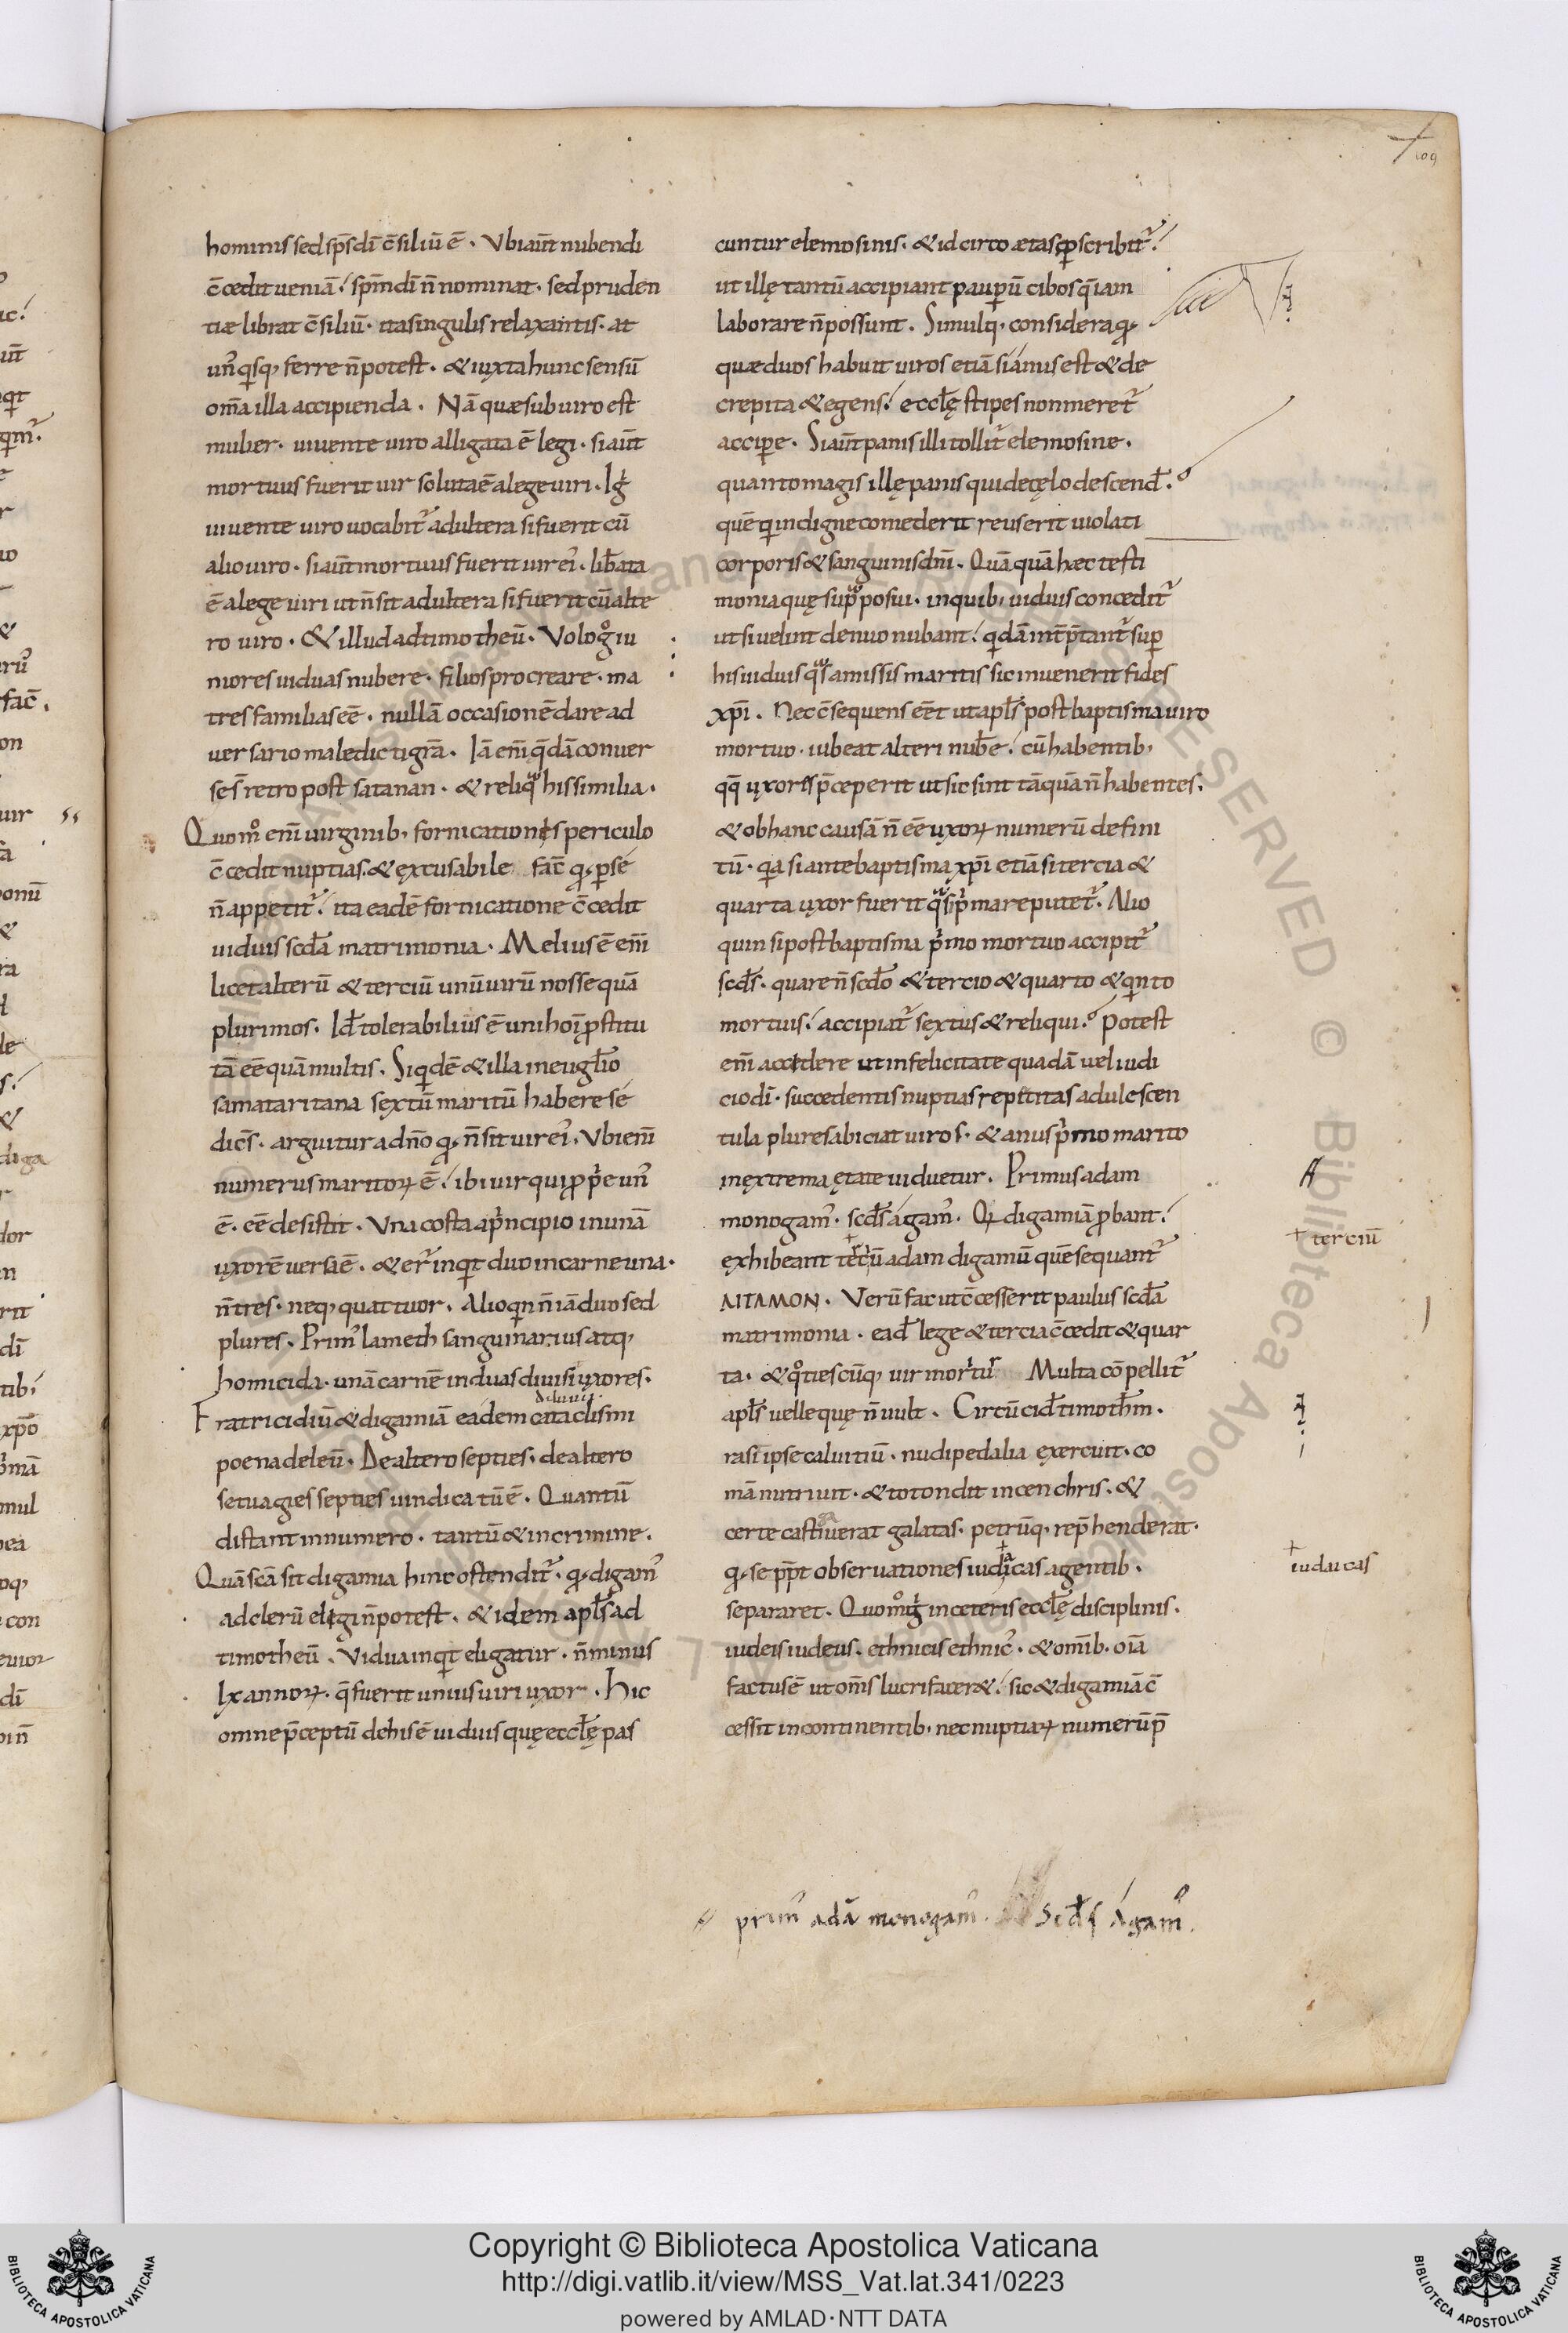 109
hominis sed sp̄s dī c̄siliū ē . Vbi aūt nubendi
c̄cedit ueniā ; sp̄m dī n̄ nominat . sed pruden
tiæ librat c̄siliū . ita singulis relaxantis . at
un᾽ qisq, ferre n̄ potest . & iuxta hunc sensū
om̄a illa accipienda . Nā quæ sub uiro est
mulier . uiuente uiro alligata ē legi . si aūt
mortuus fuerit uir soluta ē a lege uiri . Iḡ
uiuente uiro uocabit᾽ adultera si fuerit cū
alio uiro . si aūt mortuus fuerit uir ei᾽ . lib̄ata
ē a lege uiri ut n̄ sit adultera si fuerit cū alte
ro uiro . & illud ad timotheū . Volo g͛ iu
niores uiduas nubere . filios procreare . ma
tres familias eē . nullā occasionē dare ad
uersario maledicti grā . Iā eni q̄dā conuer
sę s̄ retro post satanan . & reliqa his similia .
Quom͛ eni uirginib, fornicationis periculo
c̄cedit nuptias . & excusabile fac̄ qđ p̱ se
n̄ appetit᾽ ; ita eadē fornicatione c̄cedit
uiduis scđa matrimonia . Melius ē eni
licet alterū & terciū unū uirū nosse quā
plurimos . Id tolerabilius ē uni hoī ꝓstitu
tā eē quā multis . Siqidē & illa in euglio
samataritana sextū maritū habere se
dicēs . arguitur a dn̄o qđ n̄ sit uir ei᾽ . Vbi eni
numerus maritoꝝ ē ; ibi uir qui ꝓprie un᾽
ē . eē desistit . Vna costa a pincipio in unā
uxorē uersa ē . & er᾽ inqit duo in carne una .
n̄ tres . neq, quattuor . Alioqin n̄ iā duo sed
plures . Prim᾽ lameth sanguinarius atq,
homicida . unā carnē in duas diuisit uxores .
diluuii
Fratricidiū & digamiā eadem cataclismi
poena deleū . De altero septies . de altero
setuagies septies uindicatū ē . Quantū
distant in numero . tantū & in crimine .
Quā scā sit digamia hinc ostendit᾽ . qđ digam᾽
ad clerū eligi n̄ potest . & idem apls̄ ad
timotheū . Vidua inqit eligatur . n̄ minus
lx annoꝝ . q̄ fuerit unius uiri uxor . Hic
omne p̄ceptū de his ē uiduis quę ecclę pas
cuntur elemosinis . & idcirco ætas p̱scribit᾽ ;
ut illę tantū accipiant paup̱ū cibos q̄ iam
laborare n̄ possunt . Simulq, considera qđ
quæ duos habuit uiros etiā si anus est & de
crepita & egens ; ecclę stipes non meret᾽
accip̱e . Si aūt panis illi tollit᾽ elemosine .
quanto magis illę panis qui de cęlo descend .
quē qi indigne comederit reus erit uiolati
corporis & sanguinis dn̄i . Quā quā hæc testi
monia quę supᵃ posui . in quib, uiduis concedit᾽
ut si uelint denuo nubant ; qidā int̄p̄tant᾽ sup̱
his uiduis qas amissis maritis sic inuenerit fides
xp̄i . Nec c̄sequens eēt ut apls̄ post baptisma uiro
mortuo . iubeat alteri nub̄e ; cū habentib,
qq̄ uxores p̄ceperit ut sic sint tāquā n̄ habentes .
& ob hanc causā n̄ eē uxoꝝ numerū defini
tū . qa si ante baptisma xp̄i etiā si tercia &
quarta uxor fuerit qᵃsi pima reputet᾽ . Alio
quin si post baptisma pimo mortuo accipit᾽
scds̄ . quare n̄ scdo & tercio & quarto & qinto
mortuis ; accipiat᾽ sextus & reliqui . Potest
eni accidere ut infelicitate quadā uel iudi
cio dī . succedentis nuptias repetitas adulescen
tula plures abiciat uiros . & anus pimo marito
in extrema ętate uiduetur . Primus adam
monogam᾽ . scds̄ agam᾽ . Qi digamiā ꝓbant ;
exhibeant terciū adam digamū quē sequant᾽
+ terciū
ΛΙΤΑΜΟΝ . Verū fac ut c̄cesserit paulus scđa
matrimonia . ead lege & tercia c̄cedit & quar
ta . & q͛tiescūq, uir morit᾽ Multa cōpellit᾽
apls̄ uelle quę n̄ uult . Circūcid timothm .
rasit ipse caluitiū . nudipedalia exercuit . co
mā nutriuit . & totondit in cenchris . &
certe castigauerat galatas . petrūq, rep̄henderat .
qđ se pp̄t obseruationes iudaicas agentib .
+ iudaicas
separaret . Quom͛ iḡ in ceteris ecclę disciplinis .
iudeis iudeus . ethnicis ethnic᾽ . & omīb . oīa
factus ē ut om̄s lucrifaceret ; sic & digamiā c̄
cessit incontinentib, nec nuptiaꝝ numerū p̄
prim᾽ adā monogam᾽ . Scds̄ Agam᾽ .
Copyright © Biblioteca Apostolica Vaticana
http://digi.vatlib.it/view/MSS_Vat.lat.341/0223
powered by AMLAD·NTT DATA
BIBLIOTECA APOSTOLICA VATICANA
BIBLIOTECA APOSTOLICA VATICANA